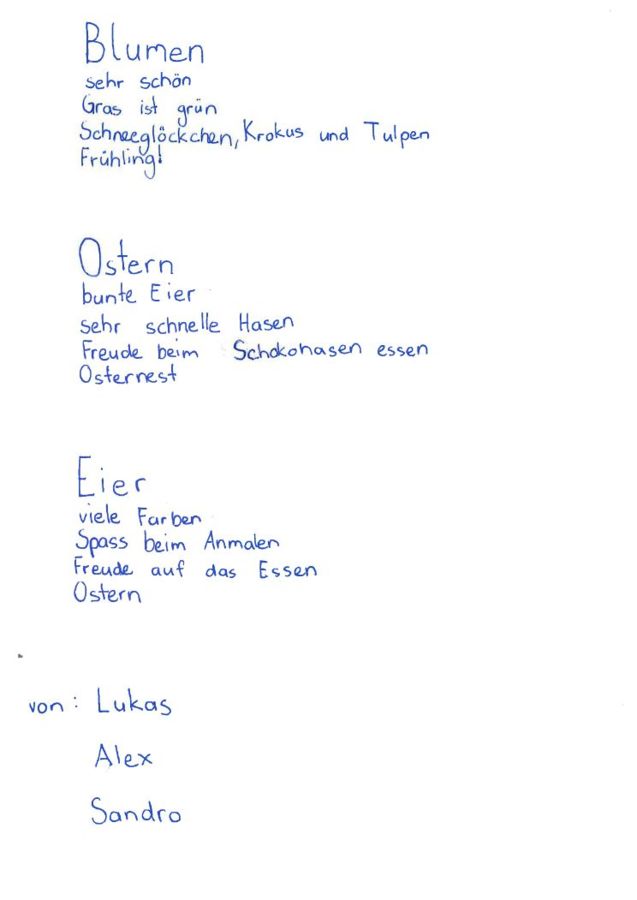 Blumen
sehr schön
Gras ist grün
Schneeglöckchen, Krokus und Tulpen
Frühling!
Ostern
bunte Eier
sehr schnelle Hasen
Freude beim Schokohasen essen
Osternest
Eier
viele Farben
Spass beim Anmalen
Freude auf das Essen
Ostern
von: Lukas
Alex
Sandro